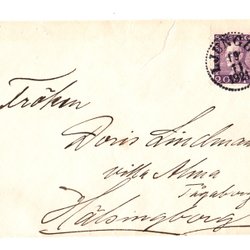 Fröken
Doris Lindman
villa Alma
Tågaborg
Hälsingborg
20